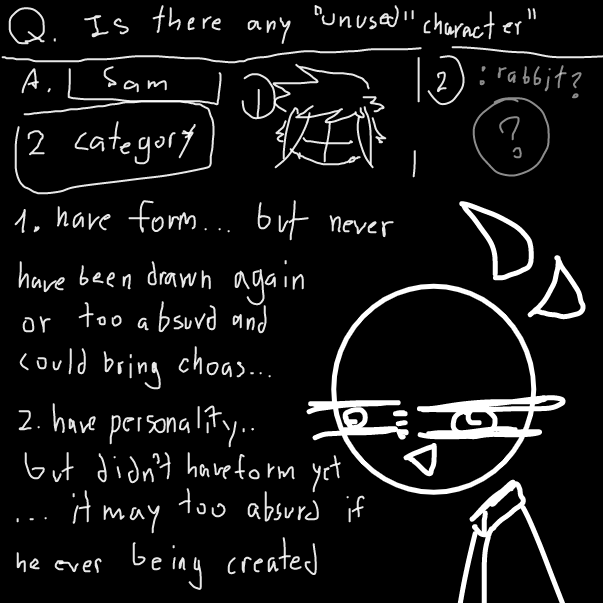 Q. Is there any "unused" "character"
A. Sam
1
2 : rabbit?
?
2 category
1. have form... but never
have been drawn again
or too absurd and
could bring choas...
2. have personality..
but didn't have form yet
... it may too absurd if
he ever being created